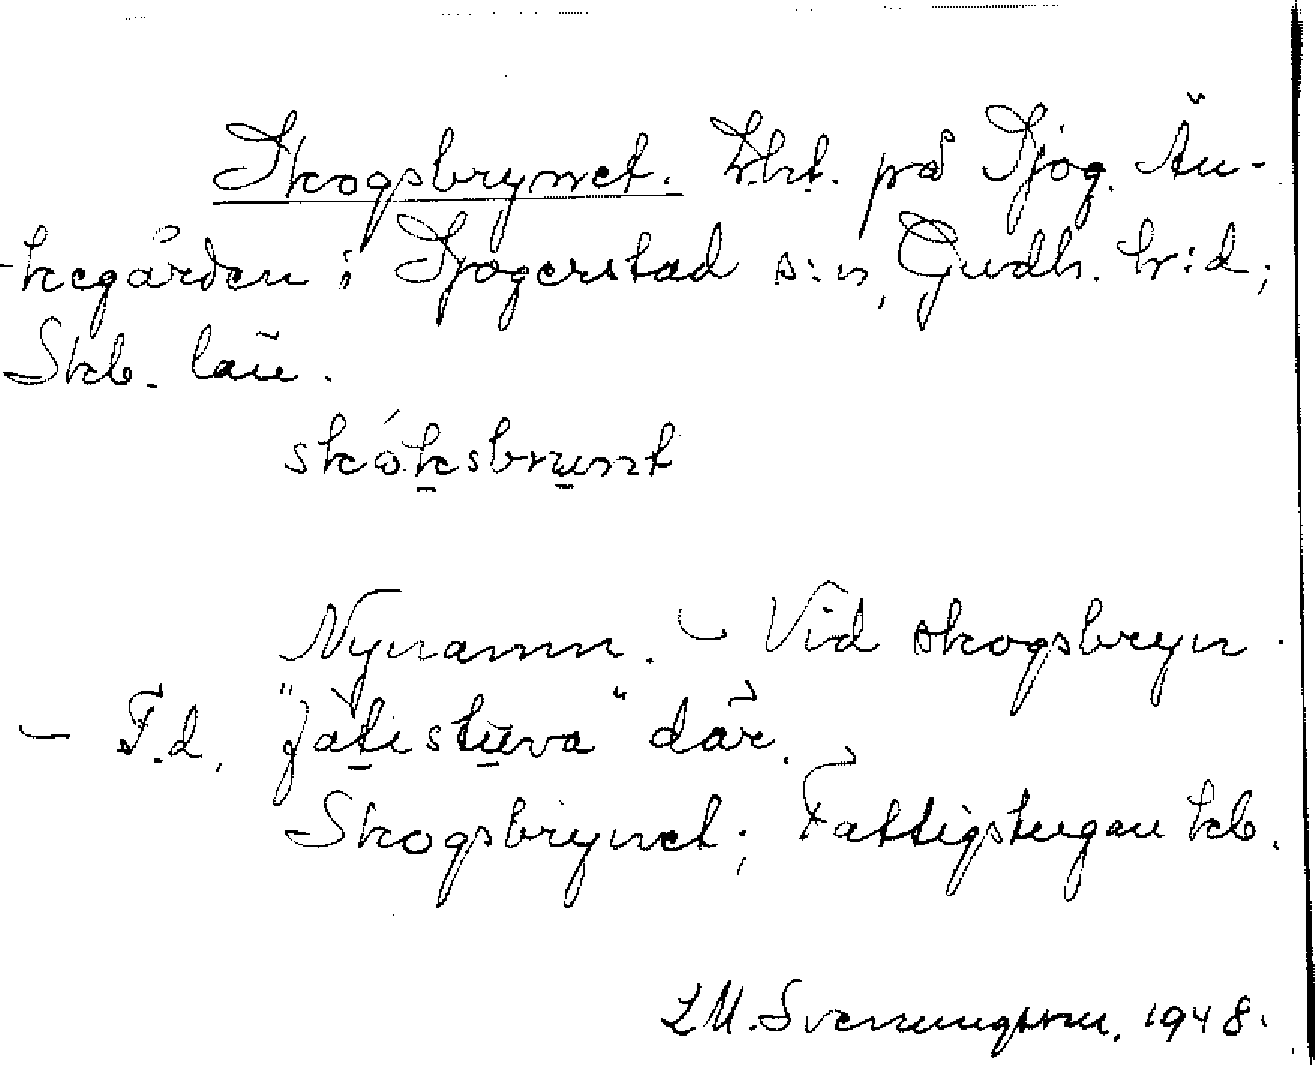 Skogsbrynet. Lht. på Sjog. Än-
kegården i Sjogerstad s:n, Gudh. h:d,
Skb. län.
skóksbrunt
Nynamn. – Vid skogsbryn.
– F.d. "fàtistuva" där.
Skogsbrynet; Fattigstugan kb.
L M. Svenungsson. 1948.